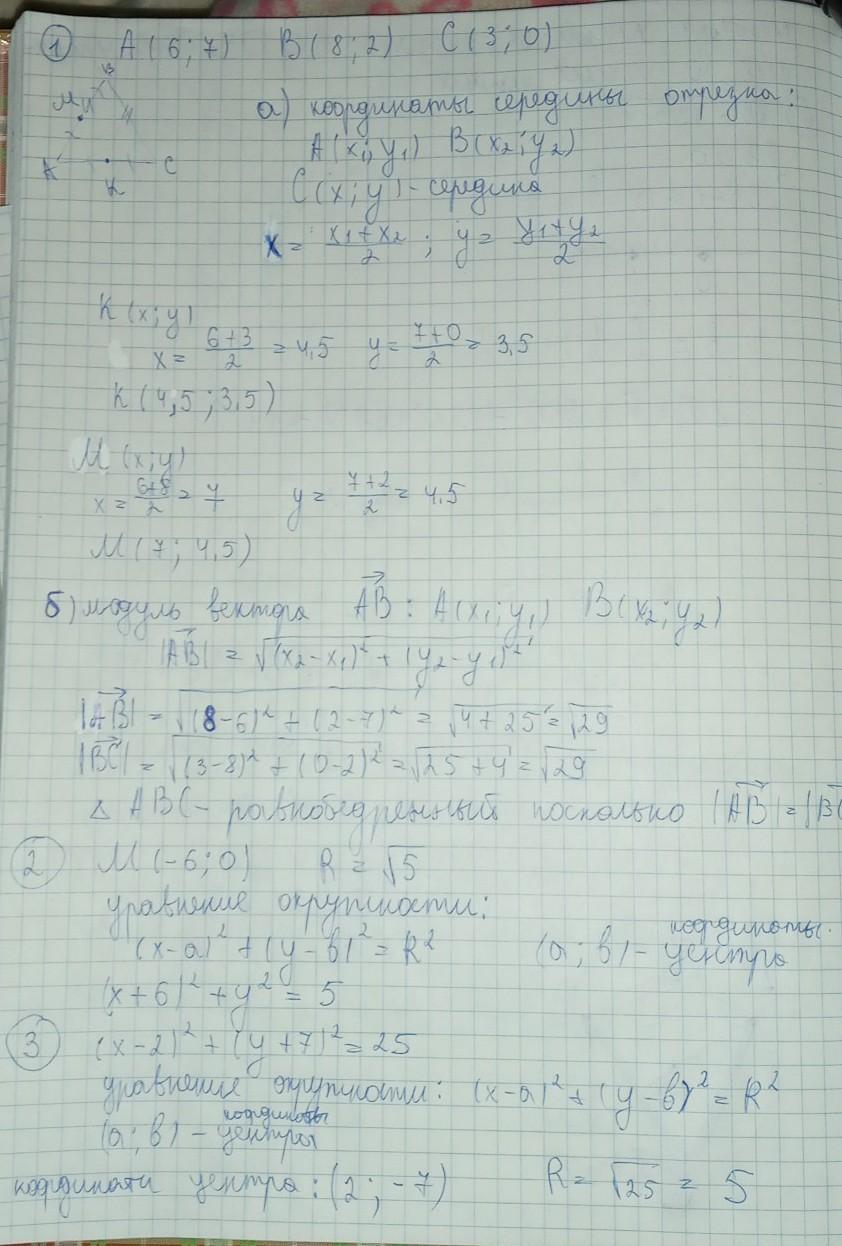 1 A(6;7) B(8;2) C(3;0)
B
M
A K C
а) координаты середины отрезка:
A(x₁;y₁) B(x₂;y₂)
C(x;y)-середина
x = (x₁+x₂)/2 ; y = (y₁+y₂)/2
K(x;y)
x = (6+3)/2 = 4,5 y = (7+0)/2 = 3,5
K(4,5;3,5)
M(x;y)
x = (6+8)/2 = 7 y = (7+2)/2 = 4,5
M(7; 4,5)
б) модуль вектора AB⃗ : A(x₁;y₁) B(x₂;y₂)
|AB⃗| = √((x₂-x₁)² + (y₂-y₁)²)
|AB⃗| = √((8-6)² + (2-7)²) = √(4+25) = √29
|BC⃗| = √((3-8)² + (0-2)²) = √(25+4) = √29
△ ABC - равнобедренный поскольку |AB⃗|=|BC
2 M(-6;0) R = √5
уравнение окружности:
(x-a)² + (y-b)² = R² (a;b) - координаты центра
(x+6)² + y² = 5
3 (x-2)² + (y+7)² = 25
уравнение окружности: (x-a)² + (y-b)² = R²
(a;b) - координаты центры
координати центра: (2;-7) R = √25 = 5